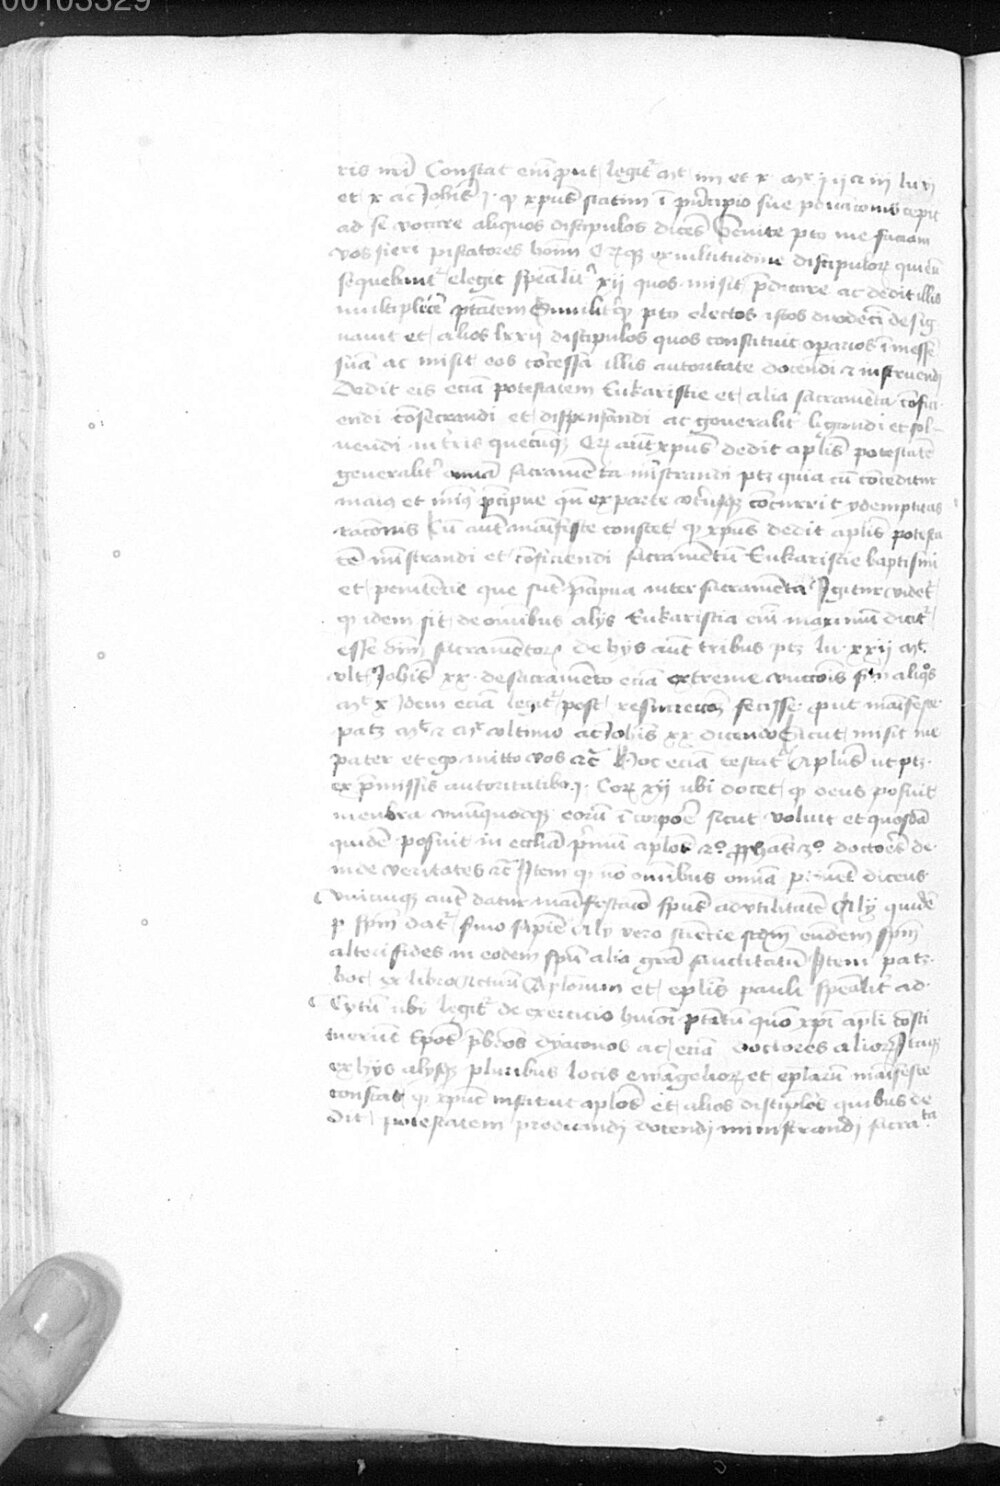 00103329
ris mei Constat enim put legitr mt iiii et x mr j ij et iij lu vj
et x ac Johis j. q xpus statim i principio sue predicationis cepit
ad se vocare aliquos discipulos dices Venite pto me faciam
vos fieri piscatores homi Et qz ex multitudine discipulor qui eu
sequebantr elegit specialitr xij quos misit predicare ac dedit illis
multiplice ptatem Similitr pto electos istos duodeci desig
navit et alios lxxij discipulos quos constituit operarios i messe
sua ac misit eos concessa illis autoritate docendi et instruendi
Dedit eis ecia potestatem Eukaristie et alia sacramenta confici
endi consecrandi et dispensandi ac generalitr ligandi et sol-
vendi in tris quecuqz Et aut xpus dedit aplis potestate
generalitr omia sacramenta ministrandi ptz quia cu conceditur
maius et minus precipue qn ex parte utriusqz concurrit ydemptitas
racionis Cu aut manifeste constet q xpus dedit aplis potesta
te ministrandi et conficiendi sacramentu Eukaristie baptismi
et penitencie que sut precipua inter sacramenta Igitur videtr
q idem sit de omibus alijs Eukaristia eni maximu dicitr
esse omi sacramentor de hijs aut tribus ptz lu xxij mt
vlt Johis xx. de sacramento ecia extreme unctois fm aliqos
mr x Idem ecia legitr post resurrectoz fecisse put maifeste
patz mt et mr ultimo ac Johis xx dicendo Sicut misit me
pater et ego mitto vos etc Hoc ecia testatr Aplus ut ptz
ex premissis autoritatibus j. Cor xij ubi docet q deus posuit
menbra unuquodqz eoru i corpore sicut voluit et quosda
quide posuit in ecclia primu aplos 2o pphas 3o doctores de
inde virtutes etc Item q no omibus omia dicens
unicuiqz aut datur manifestatio spus ad utilitate Alij quide
p spm datr sermo sapie Alij vero sciencie scdm eundem spm
alteri fides in eodem spu alia gra sanitatu Item patz
hoc ex libro Actuu Aplorum et eplis pauli specialitr ad
Tytu ubi legitr de exercicio huiomi ptatu quo xpi apli costi
tuerut Epos presbiteros dyaconos ac ecia doctores alior Itaqz
ex hijs alijsqz pluribus locis ewangelior et eplaru maifeste
constat q xpus instituit aplos et alios disciplos quibus de
dit potestatem predicandi docendi ministrandi sacra ta